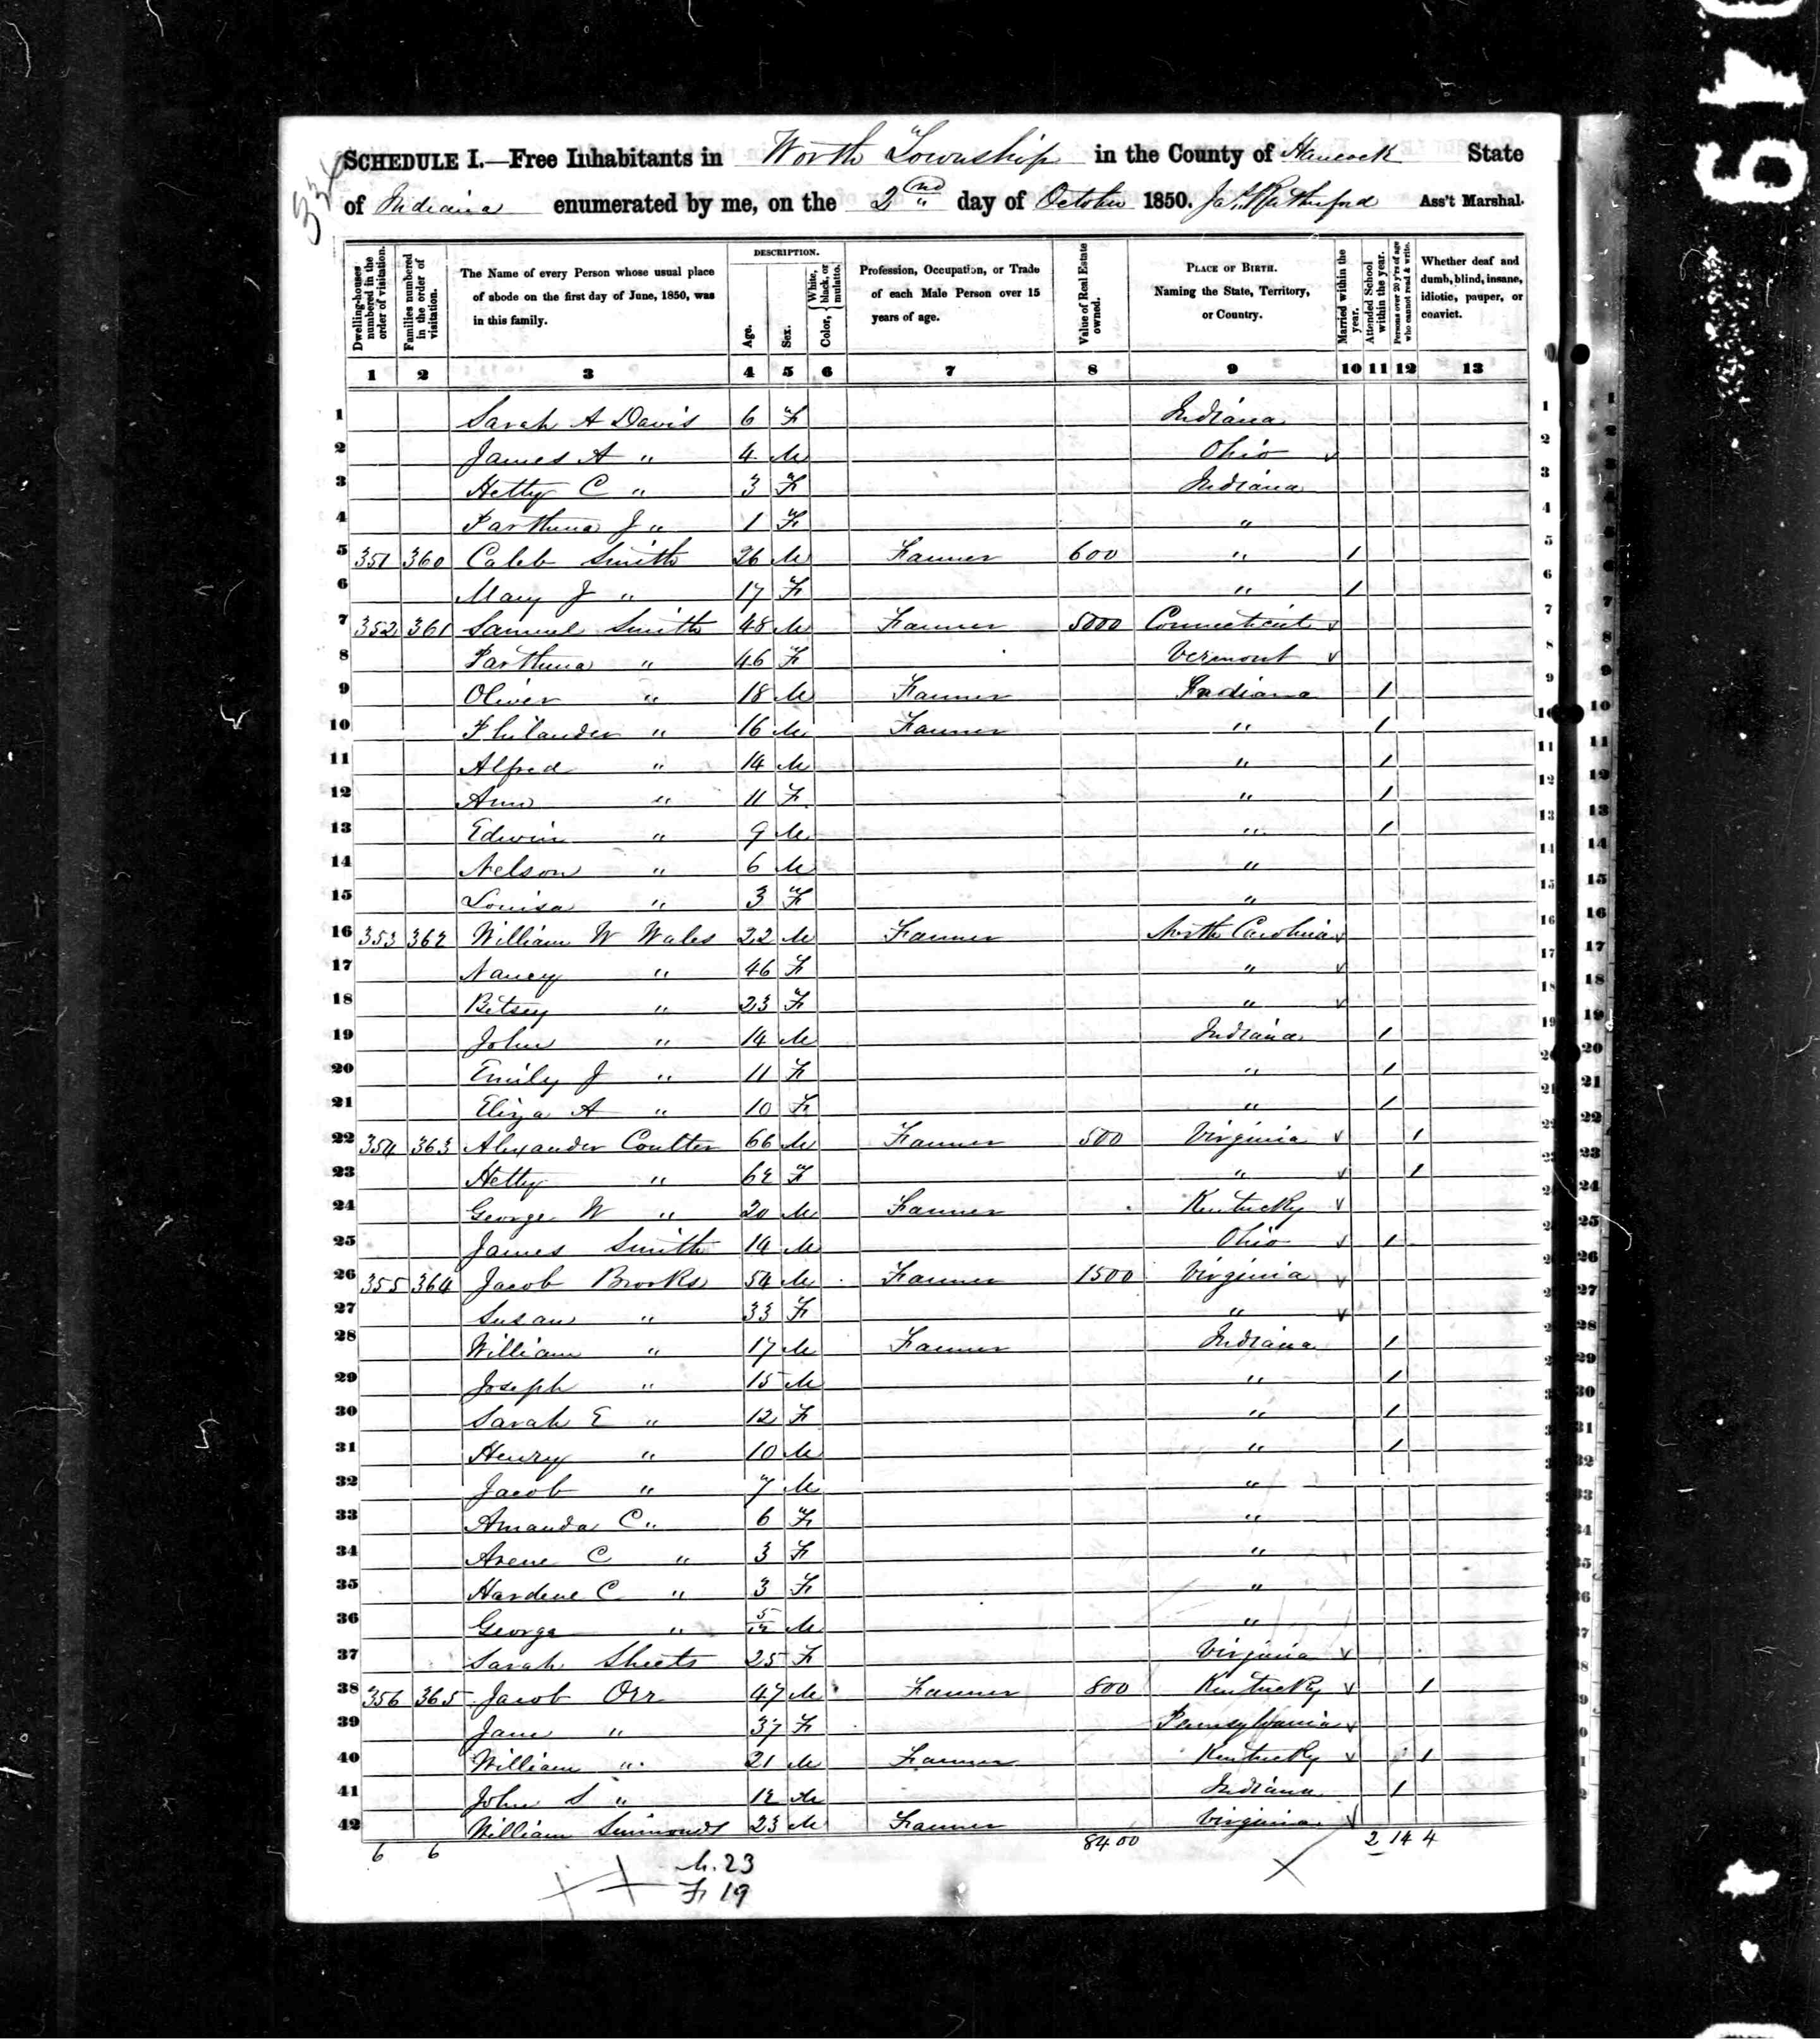 0419
334
SCHEDULE I.—Free Inhabitants in Worth Township in the County of Hancock State
of Indiana enumerated by me, on the 2nd day of October 1850. Jas Rutherford Ass't Marshal.
Dwelling-houses numbered in the order of visitation. Families numbered in the order of visitation. The Name of every Person whose usual place of abode on the first day of June, 1850, was in this family. DESCRIPTION. Age. Sex. Color, White, black, or mulatto. Profession, Occupation, or Trade of each Male Person over 15 years of age. Value of Real Estate owned. PLACE OF BIRTH. Naming the State, Territory, or Country. Married within the year. Attended School within the year. Persons over 20 y'rs of age who cannot read & write. Whether deaf and dumb, blind, insane, idiotic, pauper, or convict.
1 2 3 4 5 6 7 8 9 10 11 12 13
1 Sarah A Davis 6 F Indiana 1
2 James A " 4 M Ohio ✓ 2
3 Hetty C " 3 F Indiana 3
4 Parthena J " 1 F " 4
5 351 360 Caleb Smith 26 M Farmer 600 " 1 5
6 Mary J " 17 F " 1 6
7 352 361 Samuel Smith 48 M Farmer 5000 Connecticut ✓ 7
8 Parthena " 46 F Vermont ✓ 8
9 Oliver " 18 M Farmer Indiana 1 9
10 Philander " 16 M Farmer " 1 10
11 Alfred " 14 M " 1 11
12 Ann " 11 F " 1 12
13 Edwin " 9 M " 1 13
14 Nelson " 6 M " 14
15 Louisa " 3 F " 15
16 353 362 William W Wales 22 M Farmer North Carolina ✓ 16
17 Nancy " 46 F " ✓ 17
18 Betsey " 23 F " ✓ 18
19 John " 14 M Indiana 1 19
20 Emily J " 11 F " 1
21 Eliza A " 10 F " 1
22 354 363 Alexander Coulter 66 M Farmer 500 Virginia ✓ 1
23 Hetty " 62 F " ✓ 1
24 George W " 20 M Farmer Kentucky ✓
25 James Smith 14 M Ohio ✓ 1
26 355 364 Jacob Brooks 54 M Farmer 1500 Virginia ✓
27 Susan " 33 F " ✓
28 William " 17 M Farmer Indiana 1
29 Joseph " 15 M " 1
30 Sarah E " 12 F " 1
31 Henry " 10 M " 1
32 Jacob " 7 M "
33 Amanda C " 6 F "
34 Arene C " 3 F "
35 Hardene C " 3 F "
36 George " 5/12 M "
37 Sarah Sheets 25 F Virginia ✓
38 356 365 Jacob Orr 47 M Farmer 800 Kentucky ✓ 1
39 Jane " 37 F Pennsylvania ✓
40 William " 21 M Farmer Kentucky ✓ 1
41 John S " 12 M Indiana 1
42 William Simmonds 23 M Farmer Virginia ✓
6 6 8400 2 14 4
M. 23
F 19